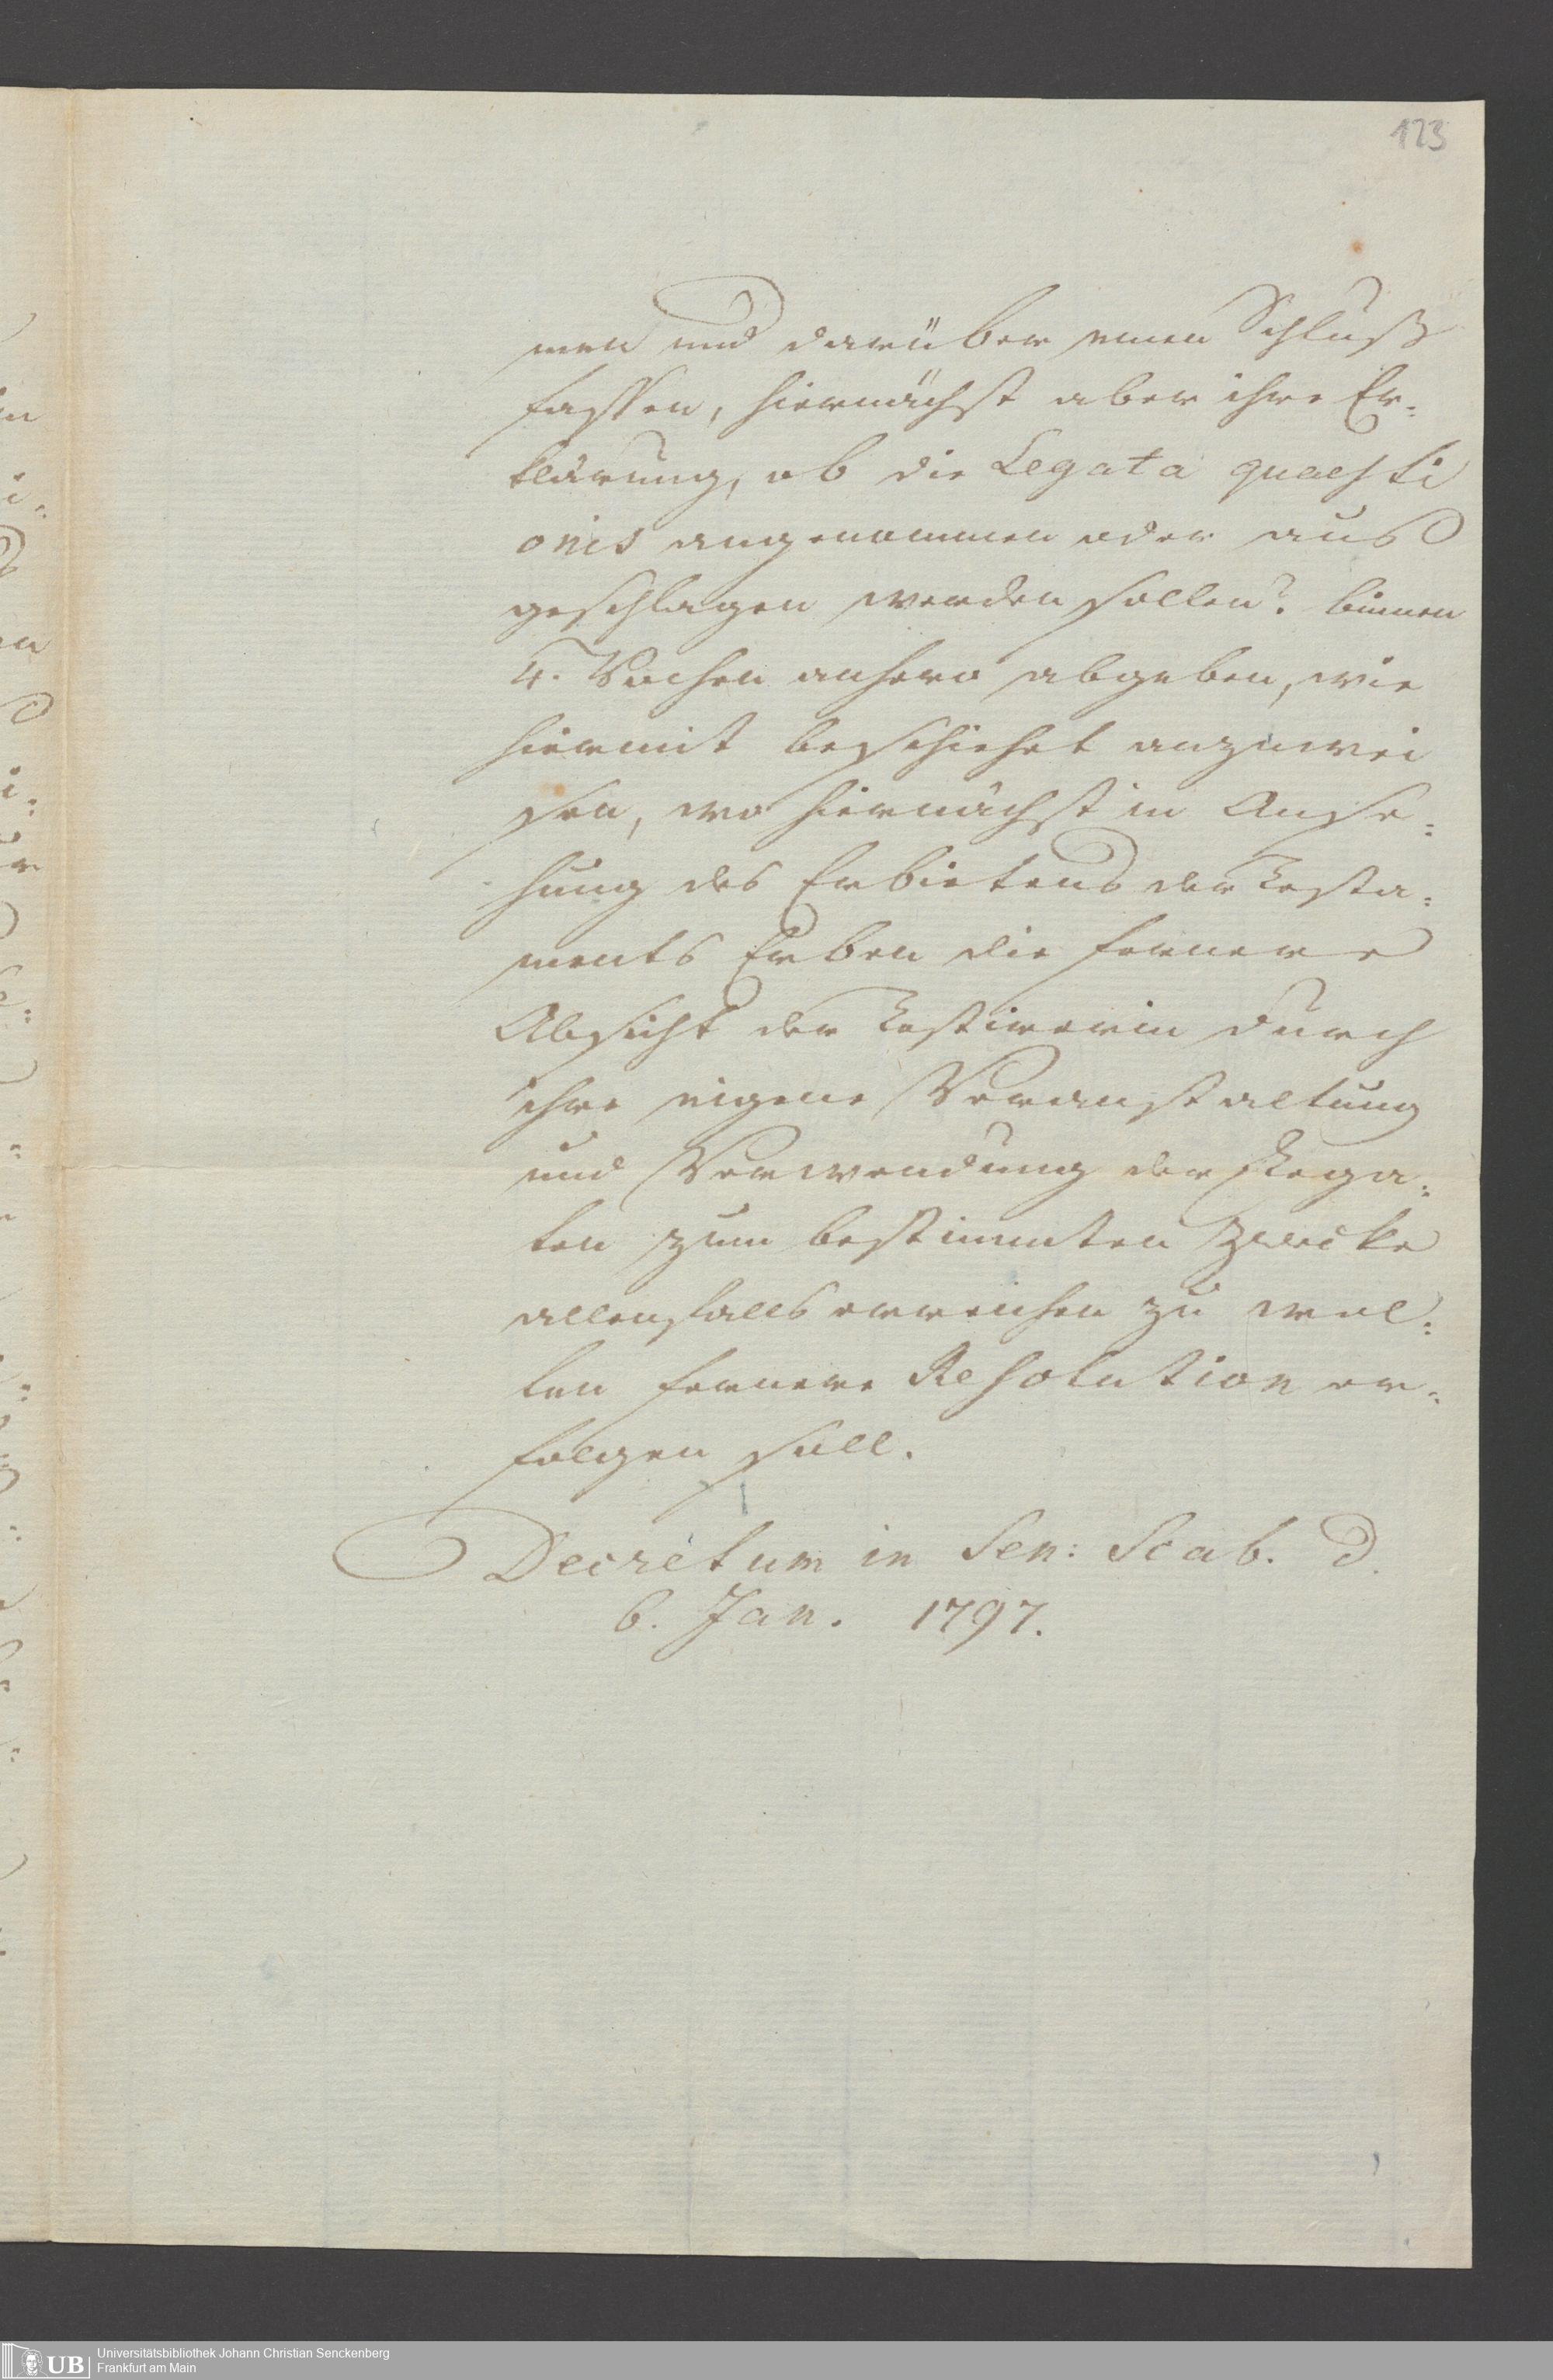 123
men und darüber einen Schluß
fassen, hiernächst aber ihre Er=
klärung, ob die Legata quaesti
onis angenommen oder aus
geschlagen werden sollen? binnen
4. Wochen anhero abgeben, wie
hiermit beschiehet anzuwei
sen, wo hiernächst in Anse=
hung des Erbietens der Testa=
ments Erben die fernere
Absicht der Testirerin durch
ihre eigene Veranstaltung
und Verwendung der Lega=
ten zum bestimmten Zwecke
allenfalls erreichen zu wol=
len fernere Resolution er=
folgen soll.
Decretum in Sen: Scab. d.
6. Jan. 1797.
UB Universitätsbibliothek Johann Christian Senckenberg
Frankfurt am Main